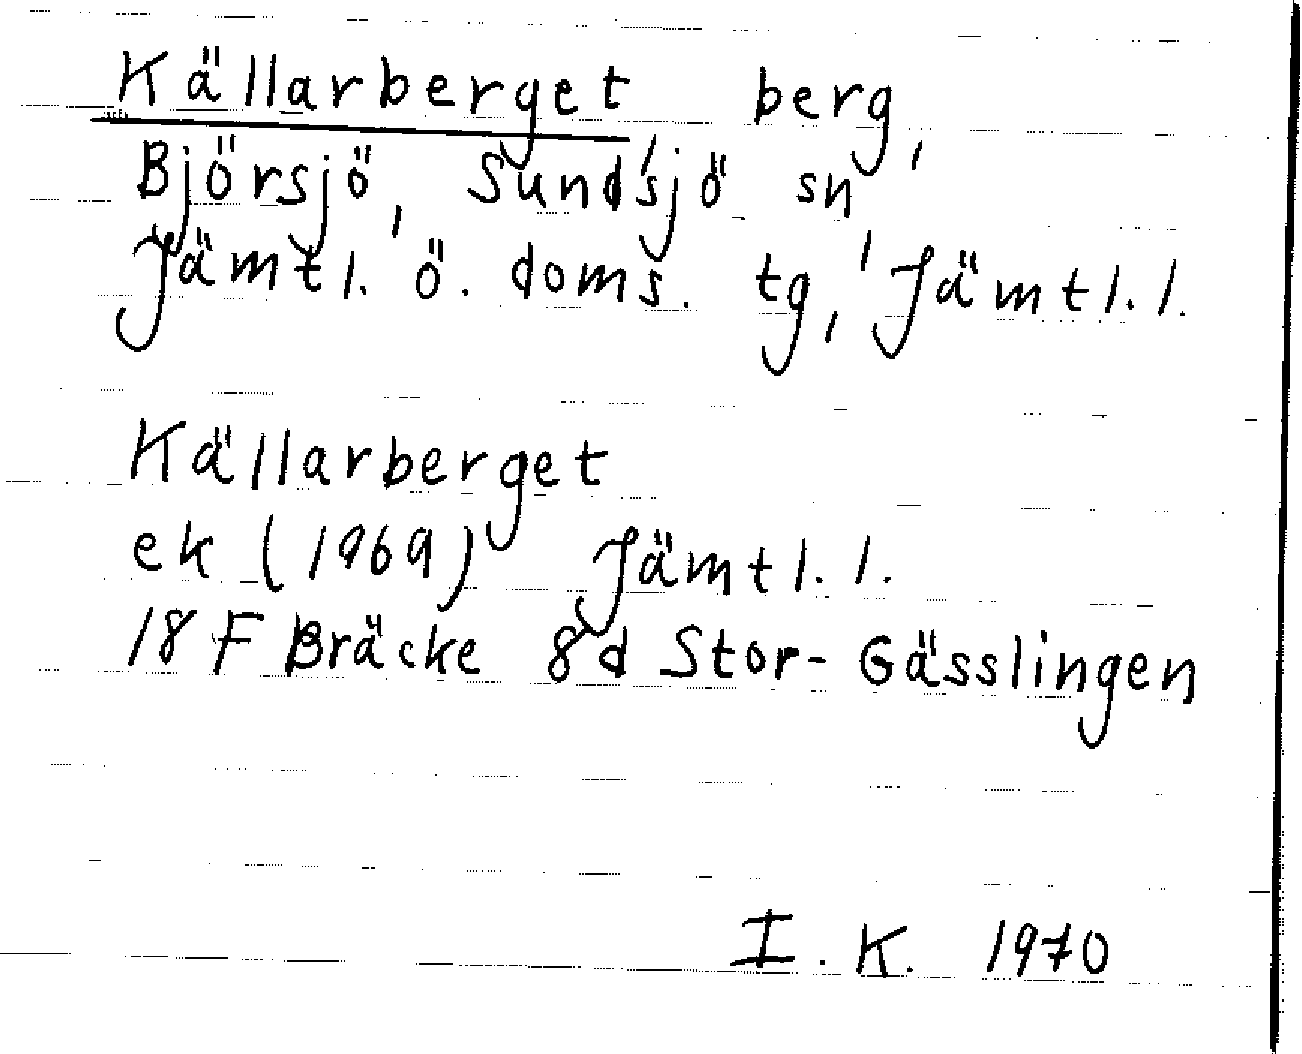 Källarberget, berg,
Björsjö, Sundsjö sn,
Jämtl. ö. doms. tg, Jämtl. l.
Källarberget
ek (1969) Jämtl. l.
18 F Bräcke 8d Stor-Gässlingen
I. K. 1970